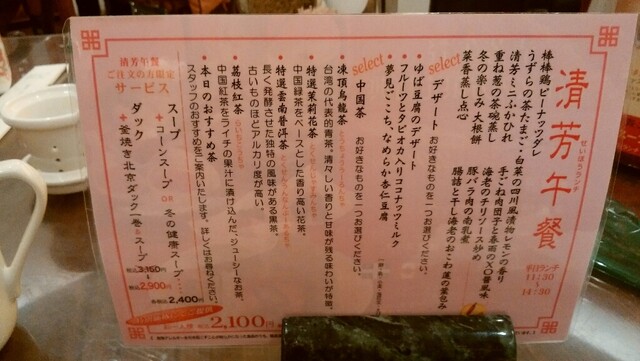 清芳午餐
せいほうランチ
平日ランチ
11:30
〜
14:30
棒棒鶏ピーナッツダレ
うずらの茶たまご・白菜の四川風漬物レモンの香り
清芳ミニふかひれ
手ごね肉団子と春雨のXO醤風味
重ね葱の茶碗蒸し
海老のチリソース炒め
冬の楽しみ 大根餅
豚バラ肉の南乳煮
菜香蒸し点心
腸詰と干し海老のおこわ 蓮の葉包み
select
デザート お好きなものを一つお選びください。
・ゆば豆腐のデザート
・フルーツとタピオカ入りココナッツミルク
・夢見ごこち、なめらか杏仁豆腐
select
中国茶 お好きなものを一つお選びください。
・凍頂烏龍茶
台湾の代表的青茶。清々しい香りと甘味が残る味わいが特徴。
・特選茉莉花茶
中国緑茶をベースとした香り高い花茶。
・特選雲南普洱茶
長く発酵させた独特の風味がある黒茶。
古いものほどアルカリ度が高い。
・茘枝紅茶
中国紅茶をライチの果汁に漬け込んだ、ジューシーなお茶。
・本日のおすすめ茶
スタッフのおすすめをご案内いたします。詳しくはお尋ねください。
清芳午餐
ご注文の方限定
サービス
スープ
+コーンスープ OR 冬の健康スープ
ダック
+釜焼き北京ダック一巻 & スープ
3,150
2,900
2,400
2,100